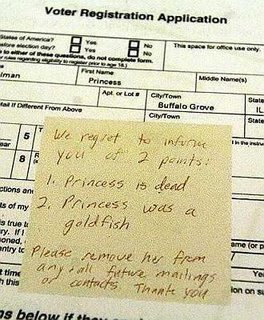 Voter Registration Application
States of America? Yes No
This space for office use only.
before election day? Yes No
to either of these questions, do not complete form.
rules regarding eligibility to register prior to age 18.)
First Name
Middle Name(s)
lman
Princess
Apt. or Lot #
City/Town
State
Buffalo Grove
IL
Mail If Different From Above
City/Town
State
5
8
We regret to inform
you of 2 points:
1. Princess is dead
2. Princess was a
goldfish
Please remove her from
any/all future mailings
or contacts. Thank you
ns below if they